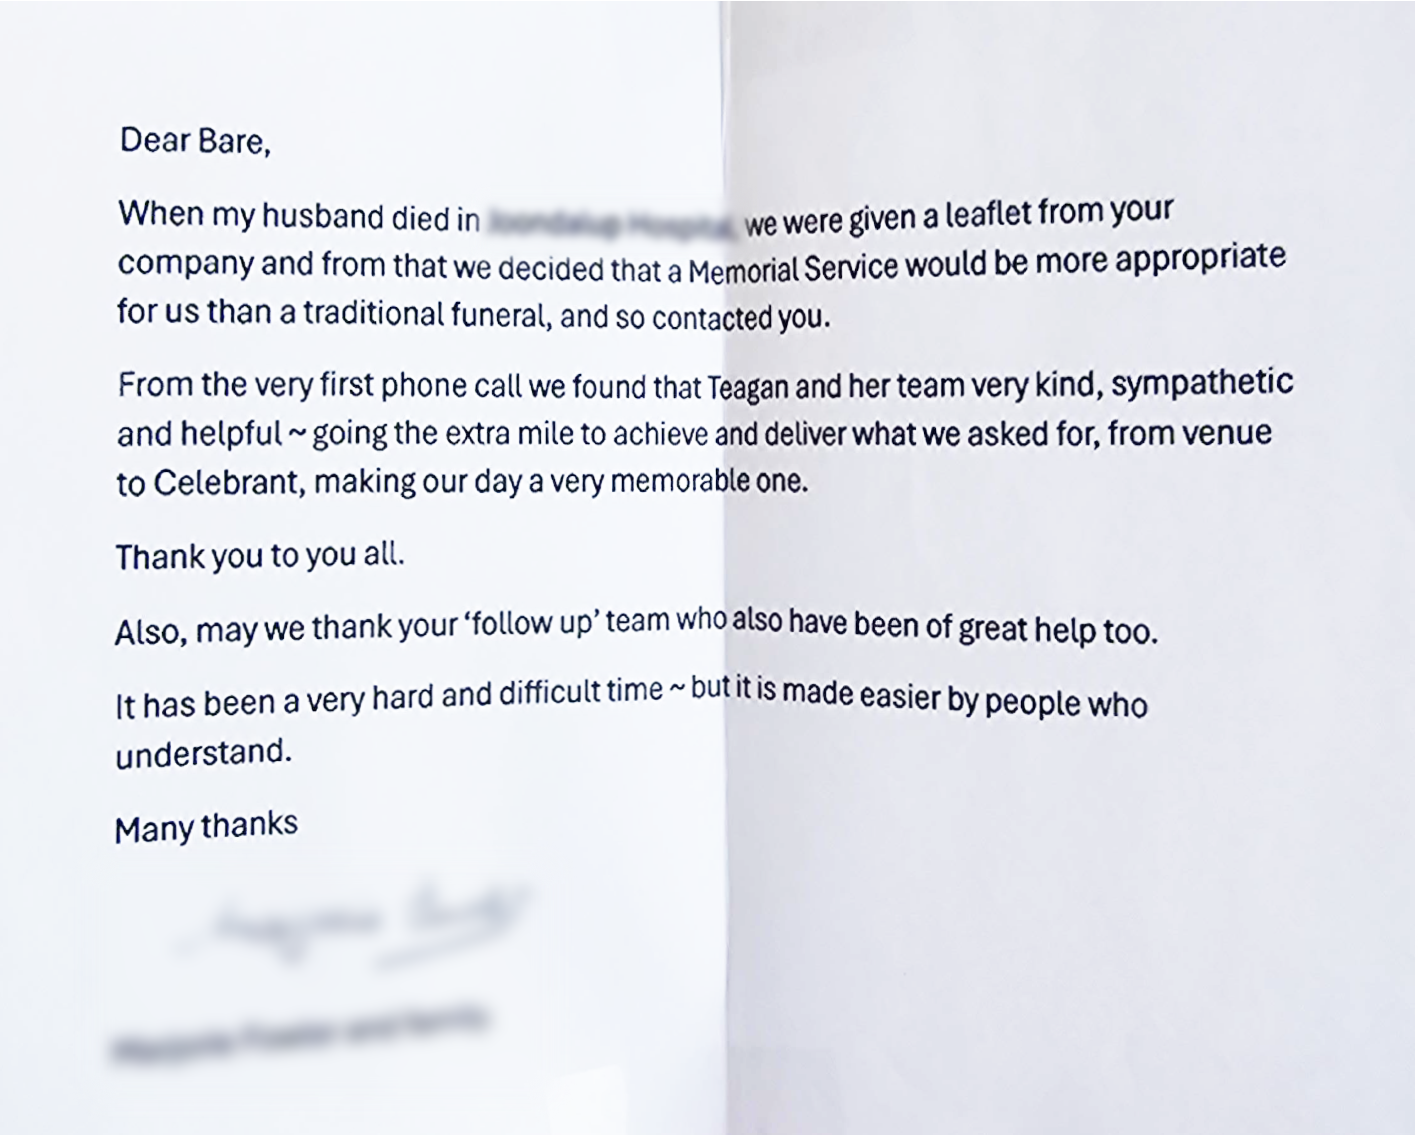 Dear Bare,
When my husband died in we were given a leaflet from your
company and from that we decided that a Memorial Service would be more appropriate
for us than a traditional funeral, and so contacted you.
From the very first phone call we found that Teagan and her team very kind, sympathetic
and helpful ~ going the extra mile to achieve and deliver what we asked for, from venue
to Celebrant, making our day a very memorable one.
Thank you to you all.
Also, may we thank your ‘follow up’ team who also have been of great help too.
It has been a very hard and difficult time ~ but it is made easier by people who
understand.
Many thanks